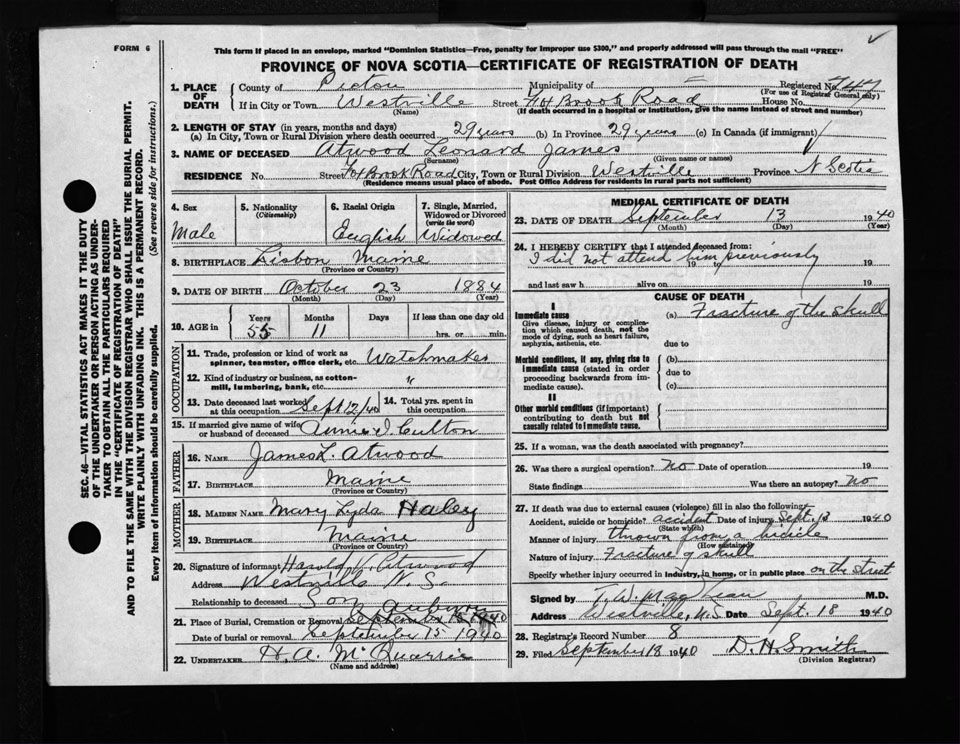 FORM 6
This form if placed in an envelope, marked "Dominion Statistics—Free, penalty for improper use $300," and properly addressed will pass through the mail "FREE"
PROVINCE OF NOVA SCOTIA—CERTIFICATE OF REGISTRATION OF DEATH
SEC. 46—VITAL STATISTICS ACT MAKES IT THE DUTY
OF THE UNDERTAKER OR PERSON ACTING AS UNDER-
TAKER TO OBTAIN ALL THE PARTICULARS REQUIRED
IN THE "CERTIFICATE OF REGISTRATION OF DEATH"
AND TO FILE THE SAME WITH THE DIVISION REGISTRAR WHO SHALL ISSUE THE BURIAL PERMIT.
WRITE PLAINLY WITH UNFADING INK. THIS IS A PERMANENT RECORD.
Every item of information should be carefully supplied. (See reverse side for instructions.)
1. PLACE OF DEATH County of Pictou Municipality of Registered No. 747
(For use of Registrar General only)
If in City or Town Westville Street Fox Brook Road House No.
(Name) (If death occurred in a hospital or institution, give the name instead of street and number)
2. LENGTH OF STAY (in years, months and days)
(a) In City, Town or Rural Division where death occurred 29 years (b) In Province 29 years (c) In Canada (if immigrant)
3. NAME OF DECEASED Atwood Leonard James
(Surname) (Given name or names)
RESIDENCE No. Street Fox Brook Road City, Town or Rural Division Westville Province N Scotia
(Residence means usual place of abode. Post Office Address for residents in rural parts not sufficient)
4. Sex Male
5. Nationality (Citizenship)
6. Racial Origin English
7. Single, Married, Widowed or Divorced (write the word) Widowed
8. BIRTHPLACE Lisbon Maine
(Province or Country)
9. DATE OF BIRTH October 23 1884
(Month) (Day) (Year)
10. AGE in Years 55 Months 11 Days If less than one day old hrs. or min.
OCCUPATION
11. Trade, profession or kind of work as spinner, teamster, office clerk, etc. Watchmaker
12. Kind of industry or business, as cotton-mill, lumbering, bank, etc. "
13. Date deceased last worked at this occupation Sept 12/40 14. Total yrs. spent in this occupation
15. If married give name of wife or husband of deceased Annie I. Cutton
FATHER
16. NAME James L. Atwood
17. BIRTHPLACE Maine
(Province or Country)
MOTHER
18. MAIDEN NAME Mary Lyda Haley
19. BIRTHPLACE Maine
(Province or Country)
20. Signature of informant Harold Atwood
Address Westville N.S.
Relationship to deceased Son
21. Place of Burial, Cremation or Removal Auburn September 15 1940
Date of burial or removal September 15 1940
22. UNDERTAKER H. A. McQuarrie
(Name and address)
MEDICAL CERTIFICATE OF DEATH
23. DATE OF DEATH September 13 1940
(Month) (Day) (Year)
24. I HEREBY CERTIFY that I attended deceased from:
I did not attend him previously 19 to 19
and last saw h alive on 19
CAUSE OF DEATH
I
Immediate cause (a) Fracture of the skull
Give disease, injury or complication which caused death, not the mode of dying, such as heart failure, asphyxia, asthenia, etc.
due to
Morbid conditions, if any, giving rise to immediate cause (stated in order proceeding backwards from immediate cause).
(b)
due to
(c)
II
Other morbid conditions (if important) contributing to death but not causally related to immediate cause.
25. If a woman, was the death associated with pregnancy?
26. Was there a surgical operation? No Date of operation 19
State findings Was there an autopsy? No
27. If death was due to external causes (violence) fill in also the following:
Accident, suicide or homicide? accident Date of injury Sept. 13 1940
(State which)
Manner of injury thrown from a bicicle
(How sustained)
Nature of injury Fracture of skull
Specify whether injury occurred in industry, in home, or in public place on the street
Signed by T. W. MacLean M.D.
Address Westville, N.S. Date Sept. 18 1940
28. Registrar's Record Number 8
29. Filed September 18 1940 D. H. Smith
(Division Registrar)